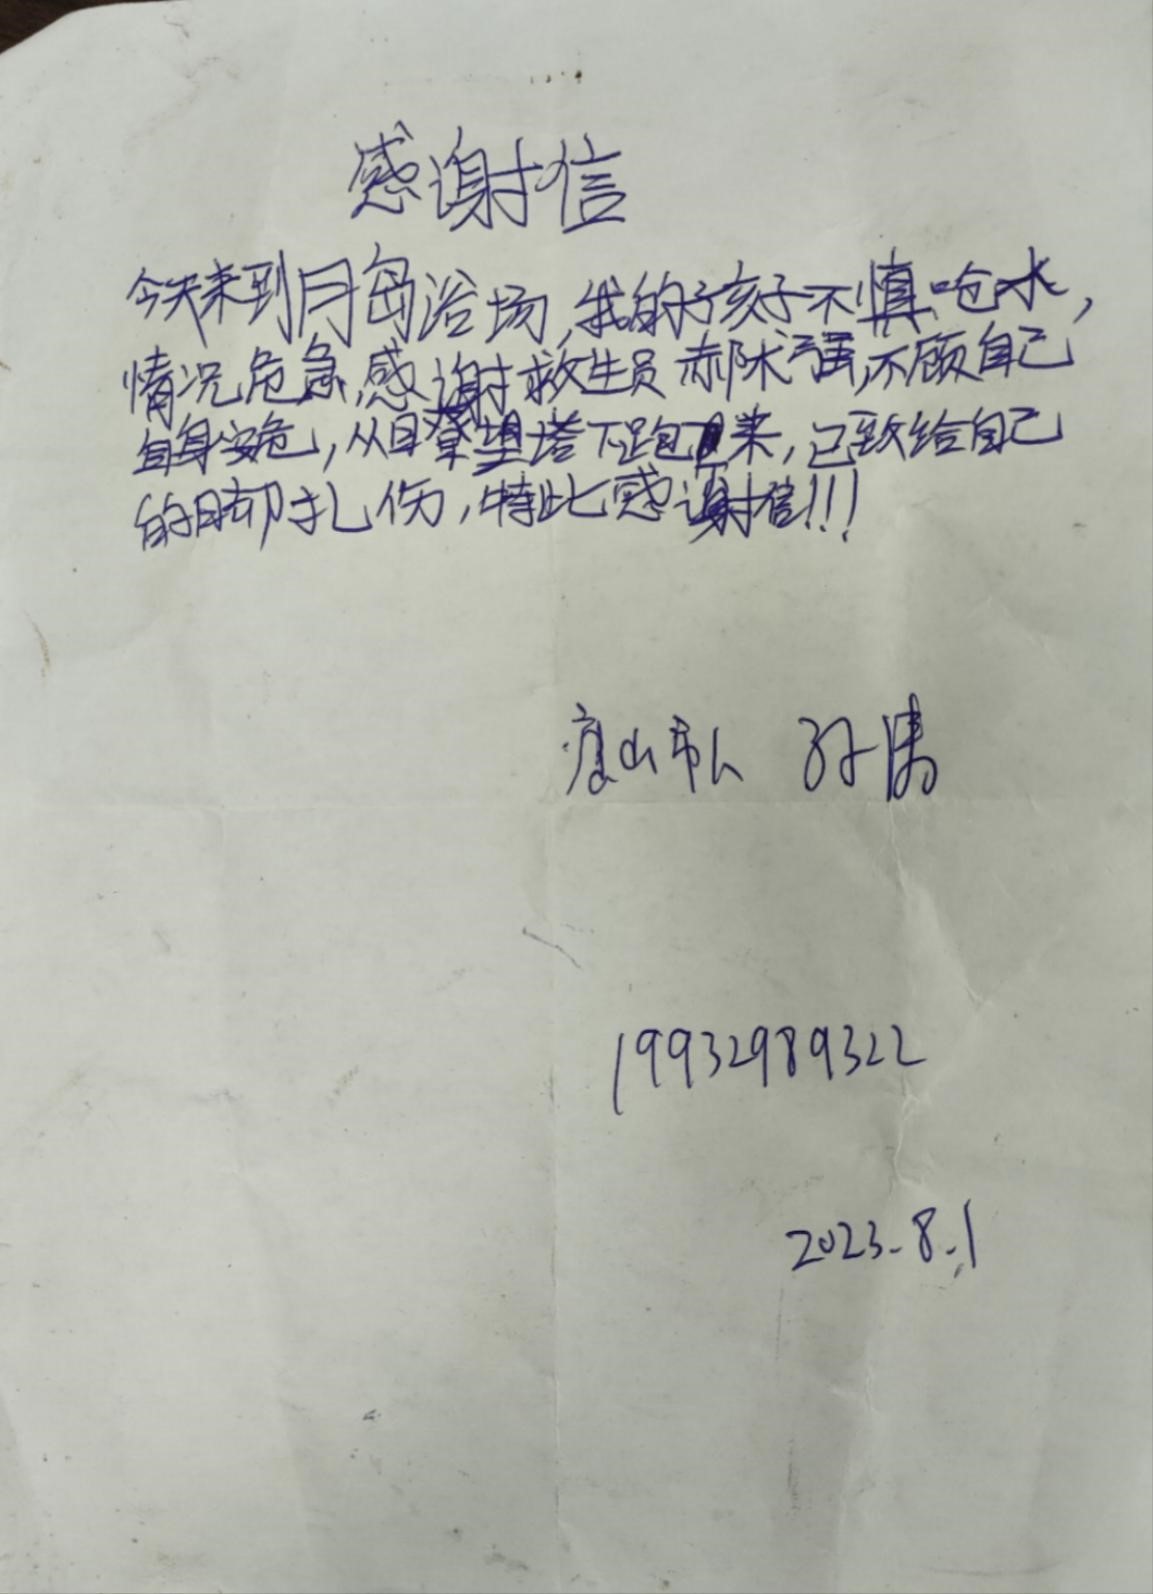 感谢信
今天来到月岛浴场,我的孩子不慎呛水,
情况危急,感谢救生员郝术强,不顾自己
自身安危,从目望塔下跑下来,已致给自己
的脚扎伤,特此感谢信!!!
唐山市人 孙
19932989322
2023.8.1